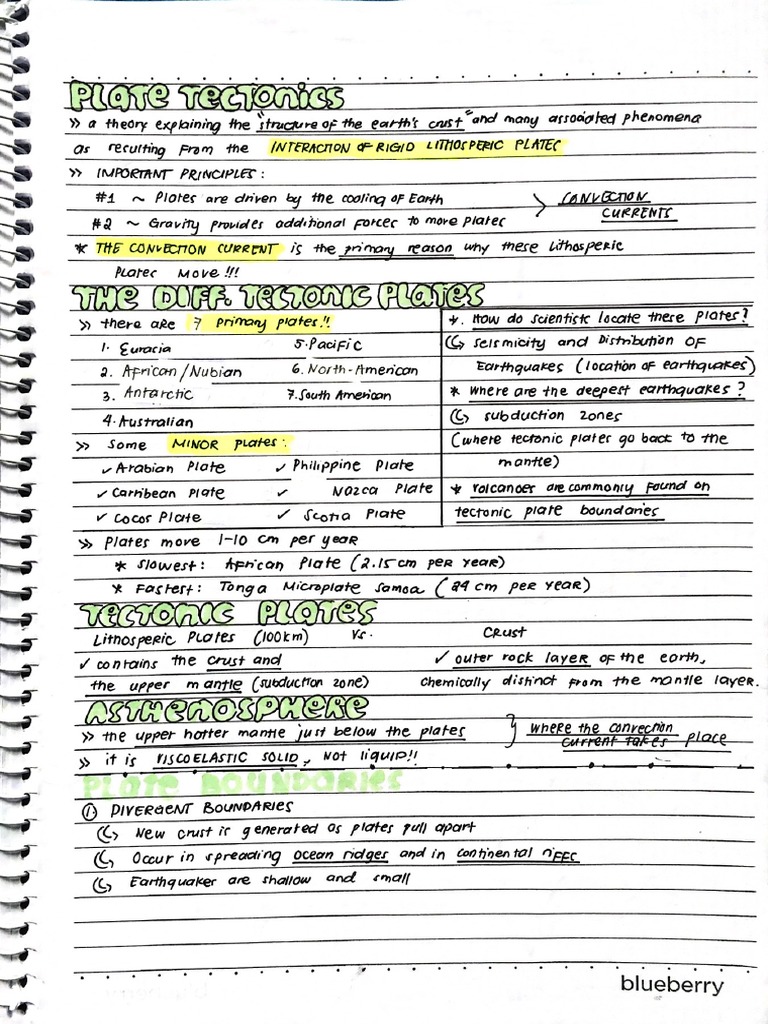 PLATE TECTONICS
» a theory explaining the "structure of the earth's crust" and many associated phenomena
as resulting from the INTERACTION OF RIGID LITHOSPERIC PLATES
» IMPORTANT PRINCIPLES:
#1 ~ Plates are driven by the cooling of Earth
#2 ~ Gravity provides additional forces to move plates
> CONVECTION
CURRENTS
* THE CONVECTION CURRENT is the primary reason why these lithosperic
Plates move!!!
THE DIFF. TECTONIC PLATES
» there are 7 primary plates!!
1. Eurasia
2. African/Nubian
3. Antarctic
4. Australian
5. Pacific
6. North-American
7. South American
» Some MINOR plates:
✓ Arabian Plate
✓ Carribean Plate
✓ Cocos Plate
✓ Philippine Plate
✓ Nazca Plate
✓ Scotia Plate
*. How do scientist locate these plates?
↪ seismicity and Distribution of
Earthquakes (location of earthquakes)
* where are the deepest earthquakes?
↪ subduction zones
(where tectonic plates go back to the
mantle)
* volcanoes are commonly found on
tectonic plate boundaries
» Plates move 1-10 cm per year
* Slowest: African Plate (2.15 cm per year)
* Fastest: Tonga Microplate Samoa (24 cm per year)
TECTONIC PLATES
Lithosperic Plates (100km) vs. Crust
✓ contains the crust and
the upper mantle (subduction zone)
✓ outer rock layer of the earth,
chemically distinct from the mantle layer.
ASTHENOSPHERE
» the upper hotter mantle just below the plates
» it is VISCOELASTIC SOLID, NOT liquid!!
} where the convection
current takes place
PLATE BOUNDARIES
①. DIVERGENT BOUNDARIES
↪ New crust is generated as plates pull apart
↪ Occur in spreading ocean ridges and in continental riffs
↪ Earthquakes are shallow and small
blueberry